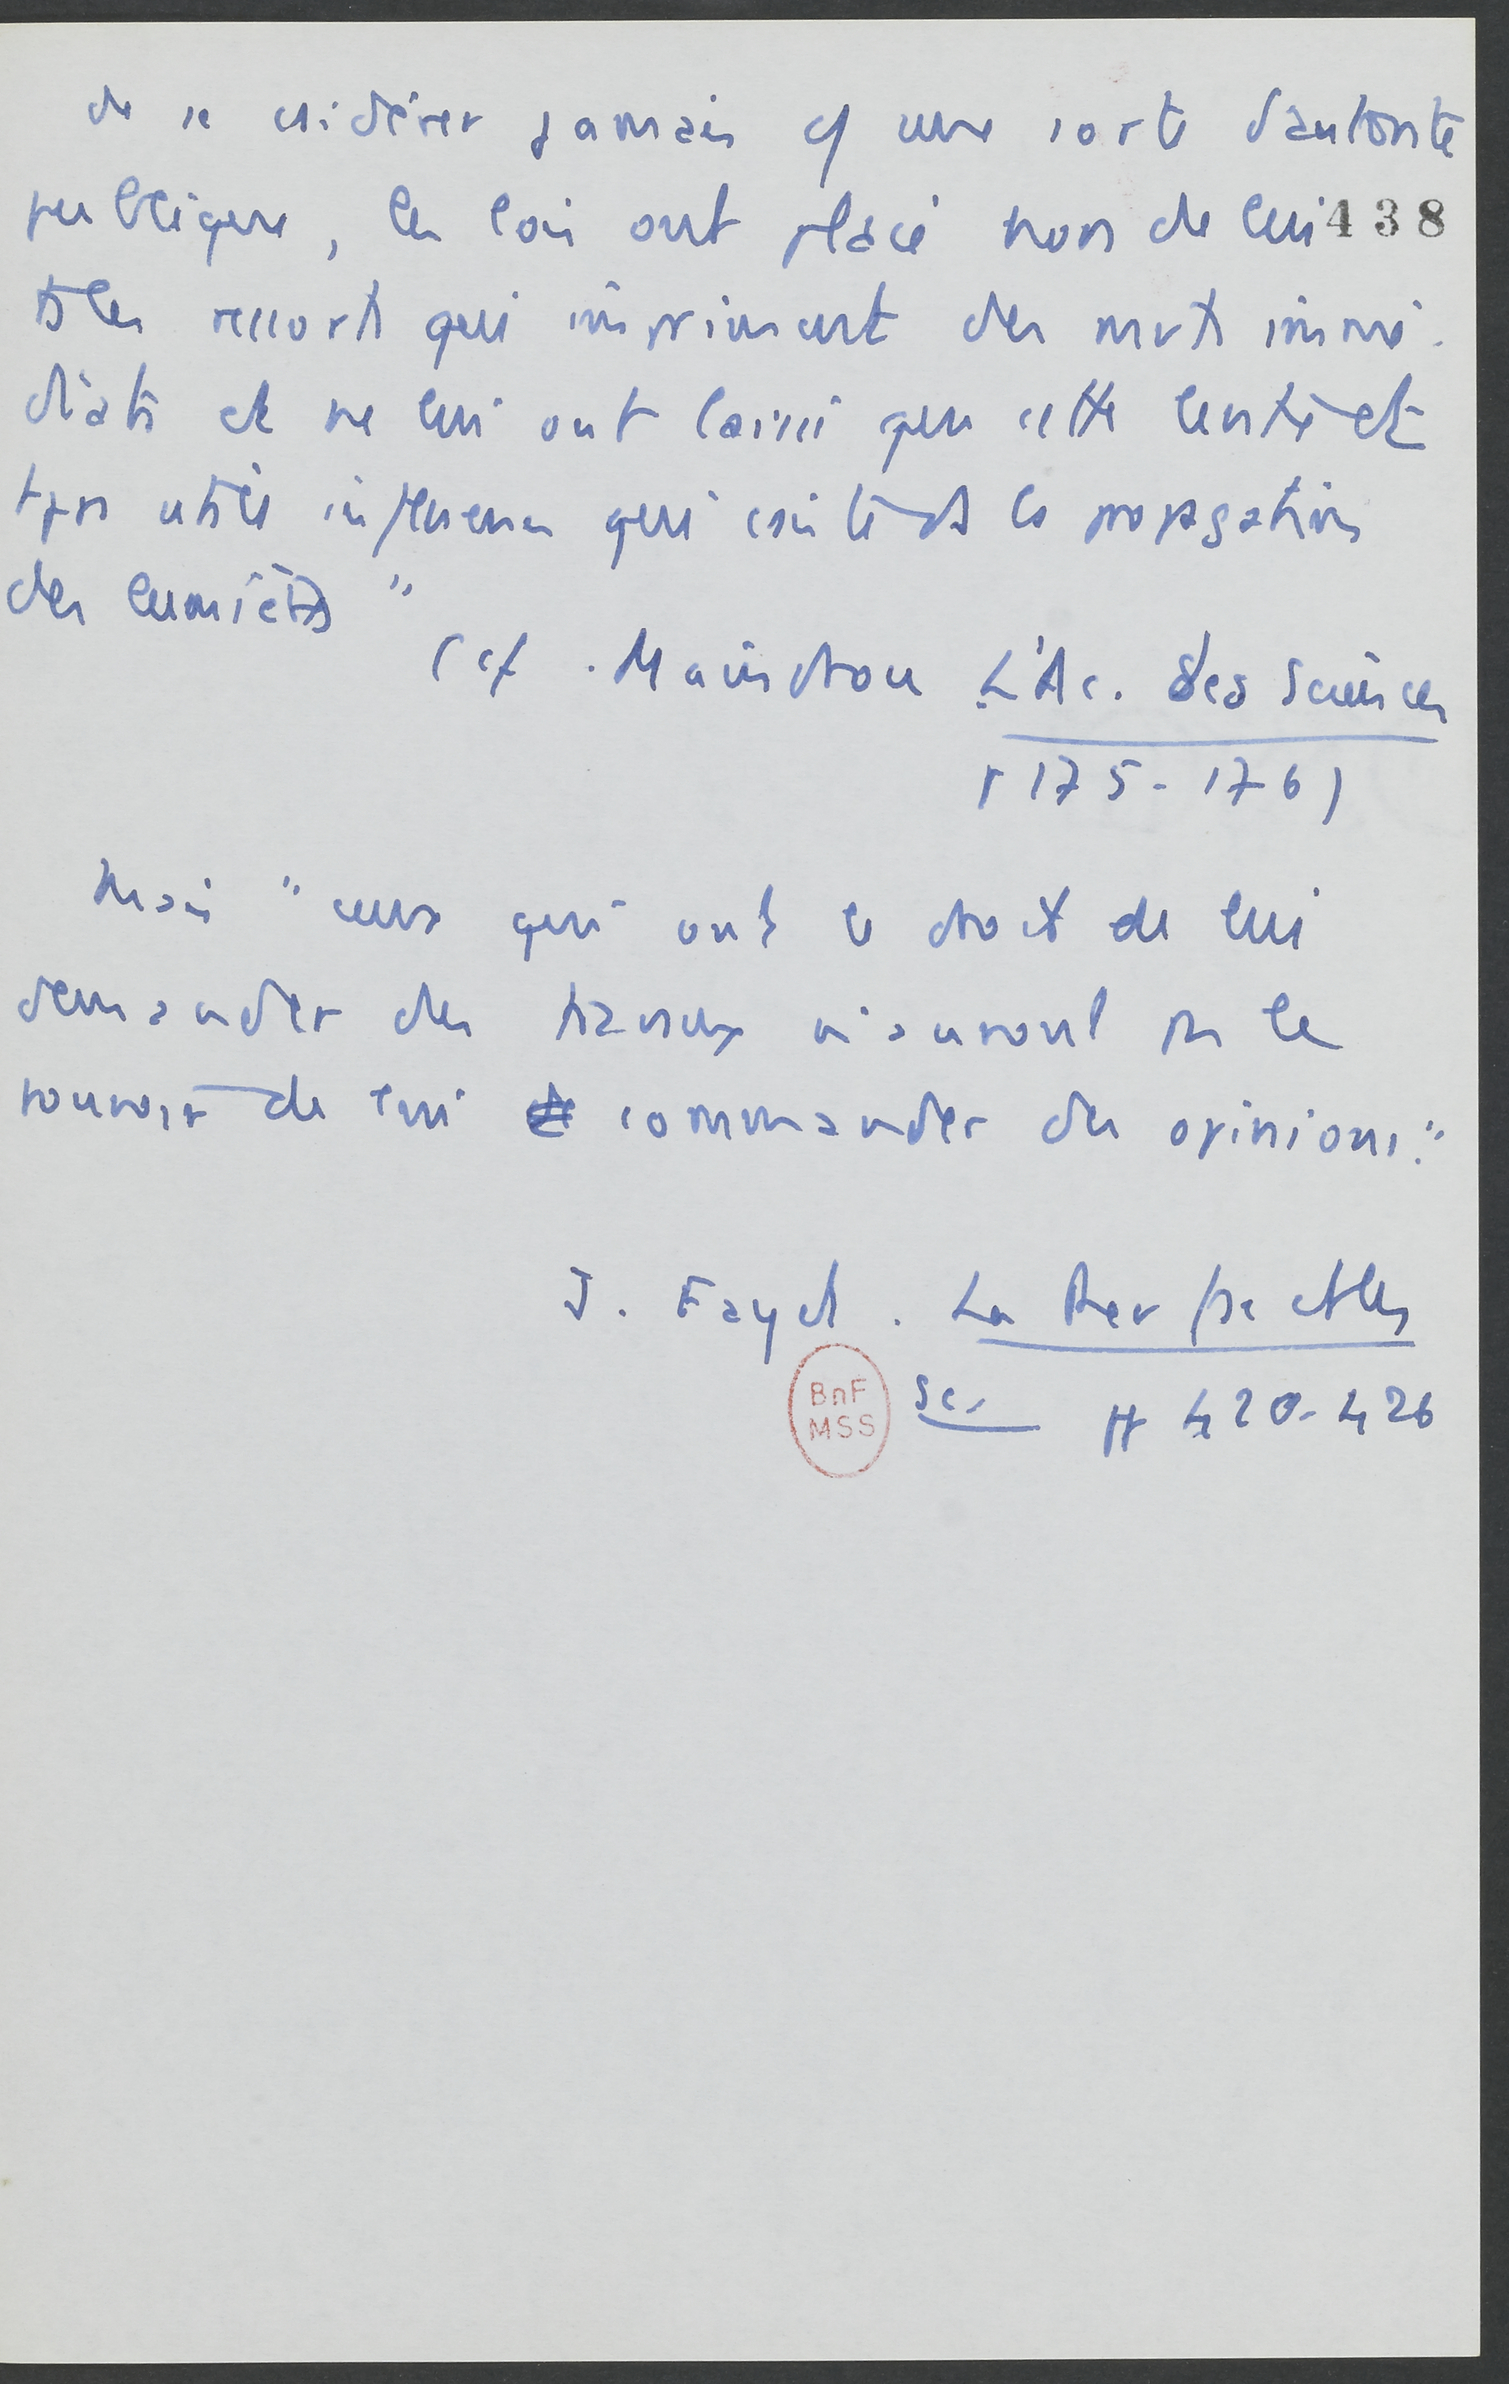 de se csidérer jamais cf une sorte d'autorité
publique, les lois ont placé hors de lui 438
ts les ressorts qui impriment des mvts immé-
diats et ne lui ont laissé que cette lente et
tjrs utile influence qui csiste ds la propagation
des lumières"
(cf. Maindron L'Ac. des Sciences
p 175-176)
Mais "ceux qui ont le droit de lui
demander des travaux n'auront pas le
pouvoir de lui commander des opinions."
J. Fayet. La Rev fse et les
BnF
MSS
Sc. pp 420-426